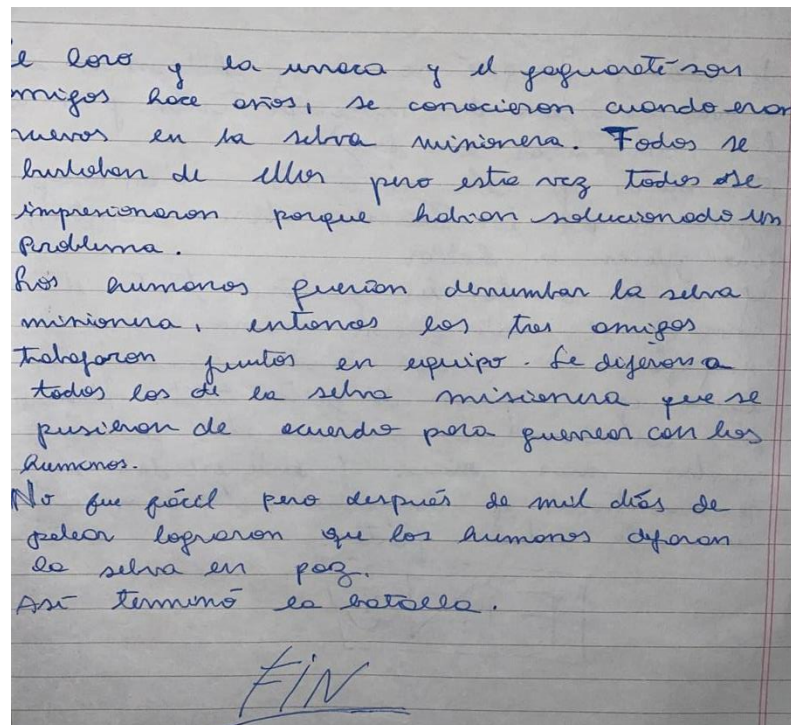 l loro y la urraca y el yaguareté son
migos hace años, se conocieron cuando eran
nuevos en la selva misionera. Todos se
burlaban de ellos pero esta vez todos se
impresionaron porque habían solucionado un
problema.
Los humanos querían derrumbar la selva
misionera, entonces los tres amigos
trabajaron juntos en equipo. Le dijeron a
todos los de la selva misionera que se
pusieron de acuerdo para guerrear con los
humanos.
No fue fácil pero después de mil días de
pelear lograron que los humanos dejaran
la selva en paz.
Así terminó la batalla.
FIN